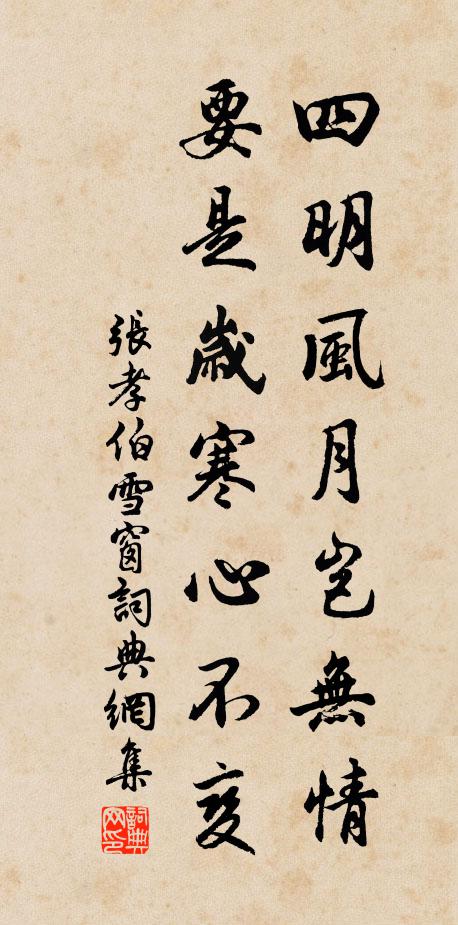 四明風月豈無情
要是歲寒心不變
張孝伯雪窗詞典網集
詞典网印